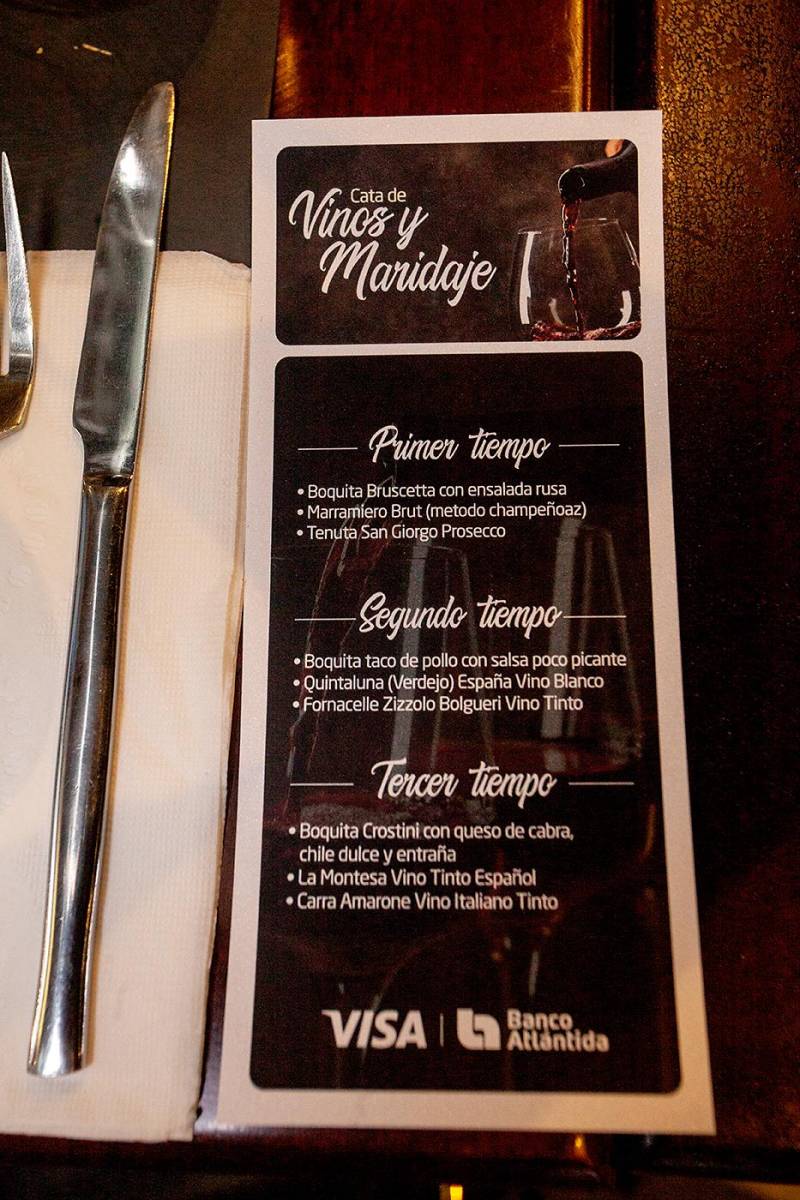 Cata de
Vinos y
Maridaje
Primer tiempo
• Boquita Bruscetta con ensalada rusa
• Marramiero Brut (metodo champeñoaz)
• Tenuta San Giorgo Prosecco
Segundo tiempo
• Boquita taco de pollo con salsa poco picante
• Quintaluna (Verdejo) España Vino Blanco
• Fornacelle Zizzolo Bolgueri Vino Tinto
Tercer tiempo
• Boquita Crostini con queso de cabra,
chile dulce y entraña
• La Montesa Vino Tinto Español
• Carra Amarone Vino Italiano Tinto
VISA | Banco
Atlántida